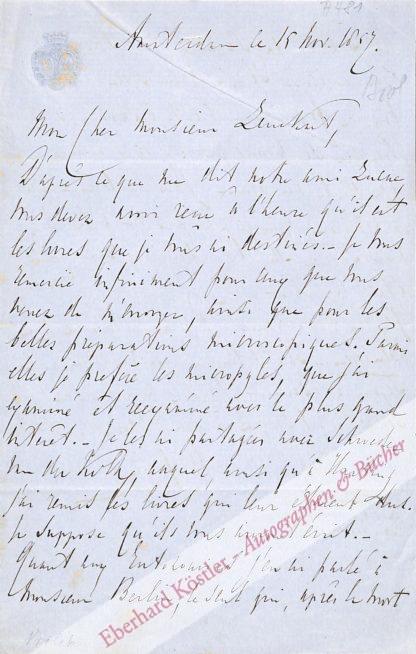 Amsterdam le 15 Nov. 1857.
Mon Cher Monsieur Leuckart,
D'après ce que me dit notre ami
vous devez avoir reçu à l'heure qu'il est
les livres que je vous ai destinés. - Je vous
remercie infiniment pour ceux que vous
venez de m'envoyer, ainsi que pour les
belles préparations microscopiques. Parmi
elles je préfère les micropyles, que j'ai
examiné et réexaminé avec le plus grand
intérêt. - Je les ai partagées avec Schroeder
van der Kolk, auquel, ainsi qu'à
j'ai remis les livres qui leur étaient dest.
Je suppose qu'ils vous écrit. -
Quant aux j'en ai parlé à
Monsieur Berlin, le seul qui, après la mort
Eberhard Köstler - Autographen & Bücher